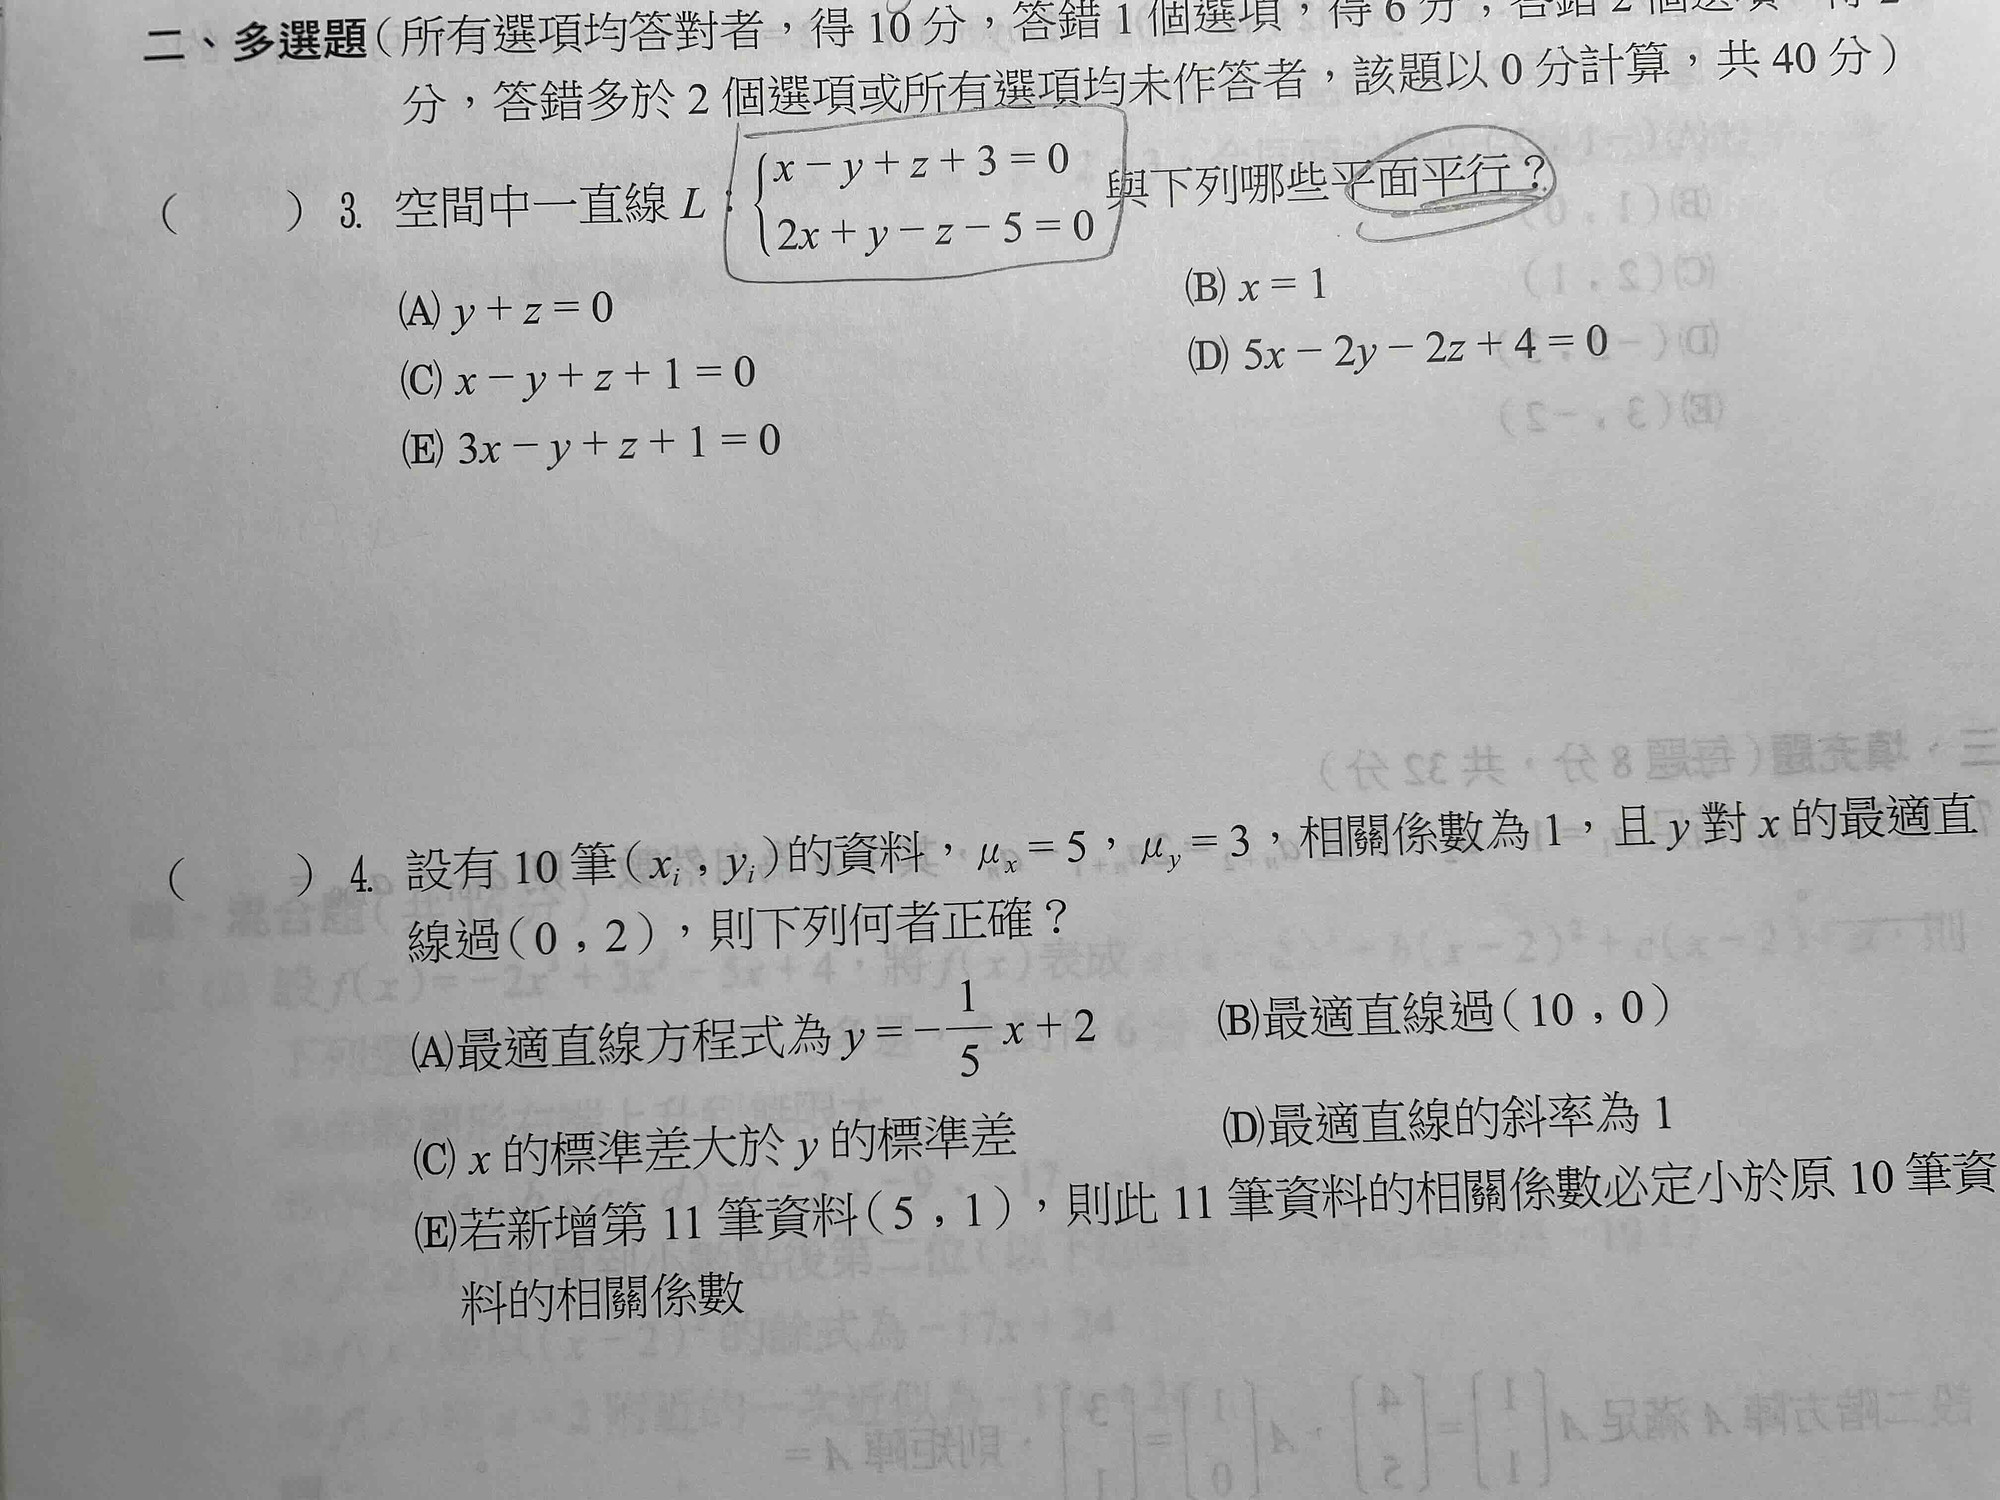 二、多選題(所有選項均答對者，得 10 分，答錯 1 個選項，得 6 分，答錯 2 個選項，得 2
分，答錯多於 2 個選項或所有選項均未作答者，該題以 0 分計算，共 40 分)
( ) 3. 空間中一直線 L：{x－y＋z＋3＝0 與下列哪些平面平行？
2x＋y－z－5＝0
(A) y＋z＝0 (B) x＝1
(C) x－y＋z＋1＝0 (D) 5x－2y－2z＋4＝0
(E) 3x－y＋z＋1＝0
( ) 4. 設有 10 筆(xᵢ，yᵢ)的資料，μₓ＝5，μ_y＝3，相關係數為 1，且 y 對 x 的最適直
線過(0，2)，則下列何者正確？
(A)最適直線方程式為 y＝－1/5 x＋2 (B)最適直線過(10，0)
(C) x 的標準差大於 y 的標準差 (D)最適直線的斜率為 1
(E)若新增第 11 筆資料(5，1)，則此 11 筆資料的相關係數必定小於原 10 筆資
料的相關係數